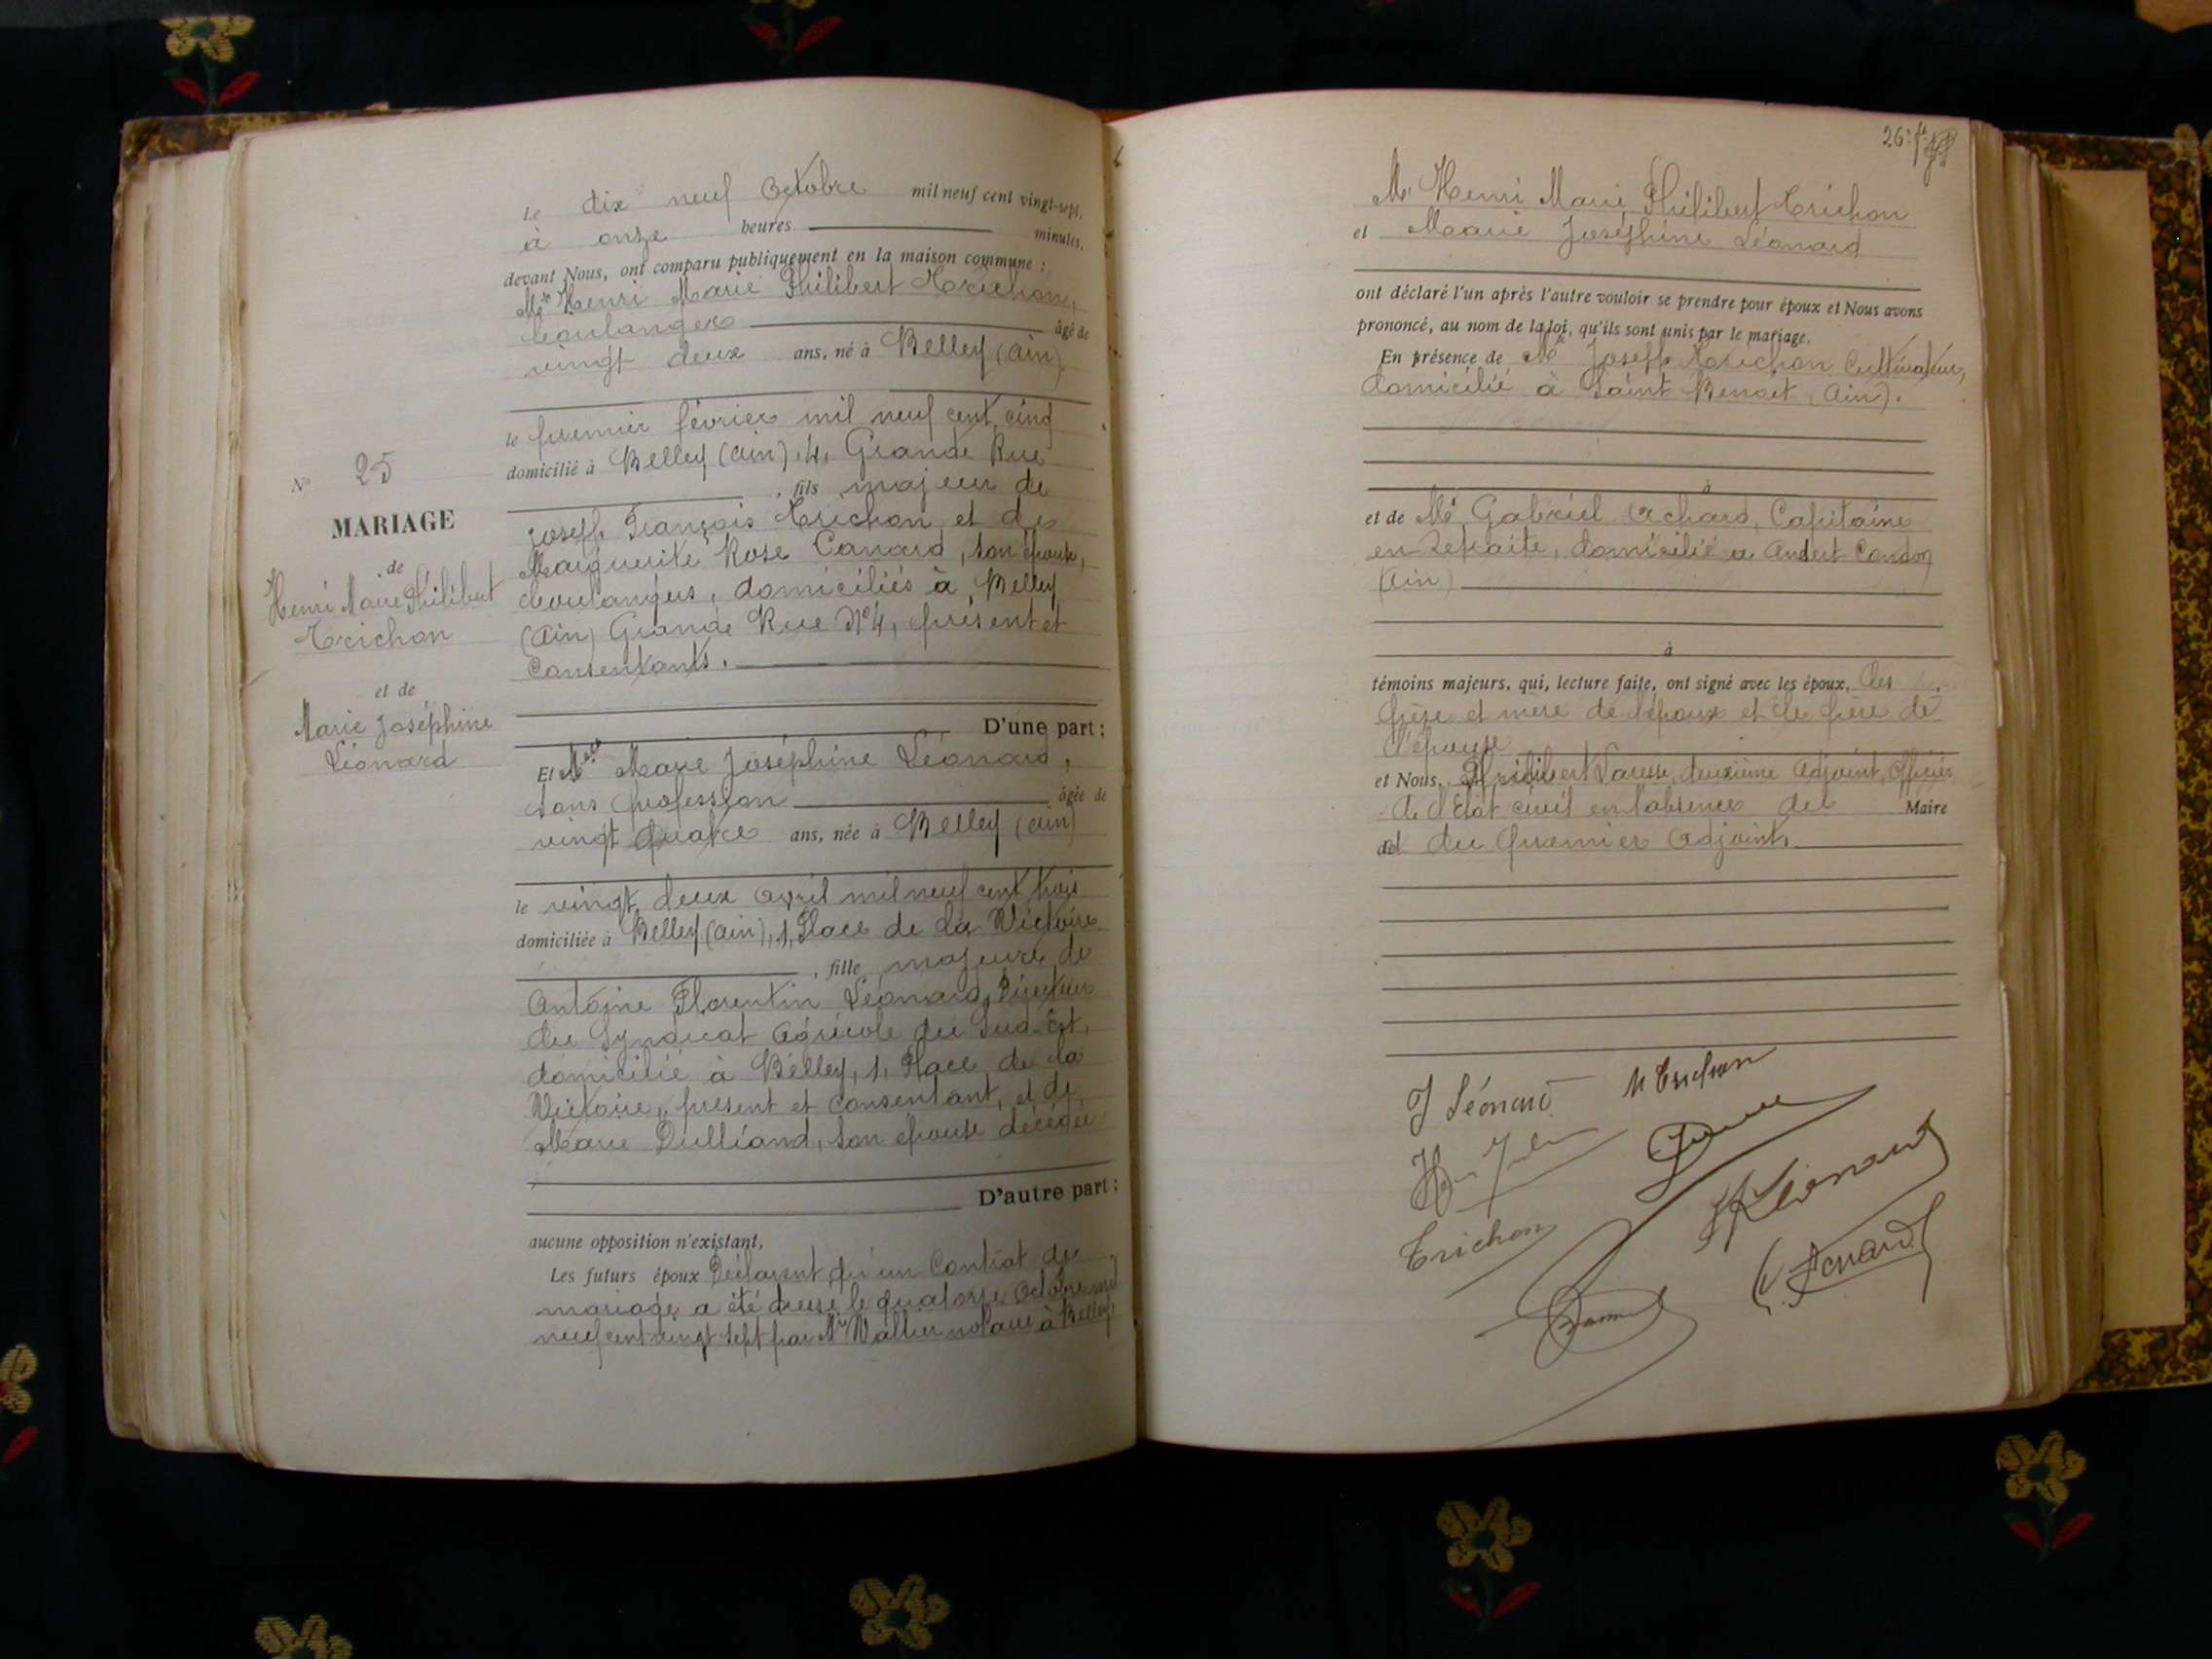 Le dix neuf Octobre mil neuf cent vingt-sept,
à onze heures minutes,
devant Nous, ont comparu publiquement en la maison commune :
Mr Henri Marie Philibert Trichon,
boulanger âgé de
vingt deux ans, né à Belley (Ain)
le premier février mil neuf cent cinq
domicilié à Belley (Ain), 4, Grande Rue
, fils majeur de
Joseph François Trichon et de
Marguerite Rose Canard, son épouse,
boulangers, domiciliés à Belley
(Ain) Grande Rue No 4, présent et
Consentants.
D'une part :
Et Melle Marie Joséphine Léonard,
sans profession âgée de
vingt quatre ans, née à Belley (Ain)
le vingt deux avril mil neuf cent trois
domiciliée à Belley (Ain), 1, Place de la Victoire
, fille majeure de
Antoine Florentin Léonard, Directeur
du Syndicat Agricole du Sud-Est,
domicilié à Belley, 1, Place de la
Victoire, présent et consentant, et de
Marie Dulliand, son épouse décédée
D'autre part :
aucune opposition n'existant,
Les futurs époux Déclarent qu'un Contrat de
mariage a été dressé le quatorze Octobre mil
neuf cent vingt sept par Me Vallier notaire à Belley
No 25
MARIAGE
de
Henri Marie Philibert
Trichon
et de
Marie Joséphine
Léonard
26
Mr Henri Marie Philibert Trichon
et Marie Joséphine Léonard
ont déclaré l'un après l'autre vouloir se prendre pour époux et Nous avons
prononcé, au nom de la loi, qu'ils sont unis par le mariage.
En présence de Mr Joseph Trichon Cultivateur,
domicilié à Saint Benoit (Ain).
à
et de Mr Gabriel Achard, Capitaine
en Retraite, domicilié a Andert Condon
(Ain)
à
témoins majeurs, qui, lecture faite, ont signé avec les époux, les
père et mère de l'époux et le père de
l'épouse
et Nous, Philibert deuxième Adjoint, Officier
de l'Etat civil en l'absence du Maire
et du premier Adjoint.
J Léonard H Trichon
Léonard
Trichon
Achard